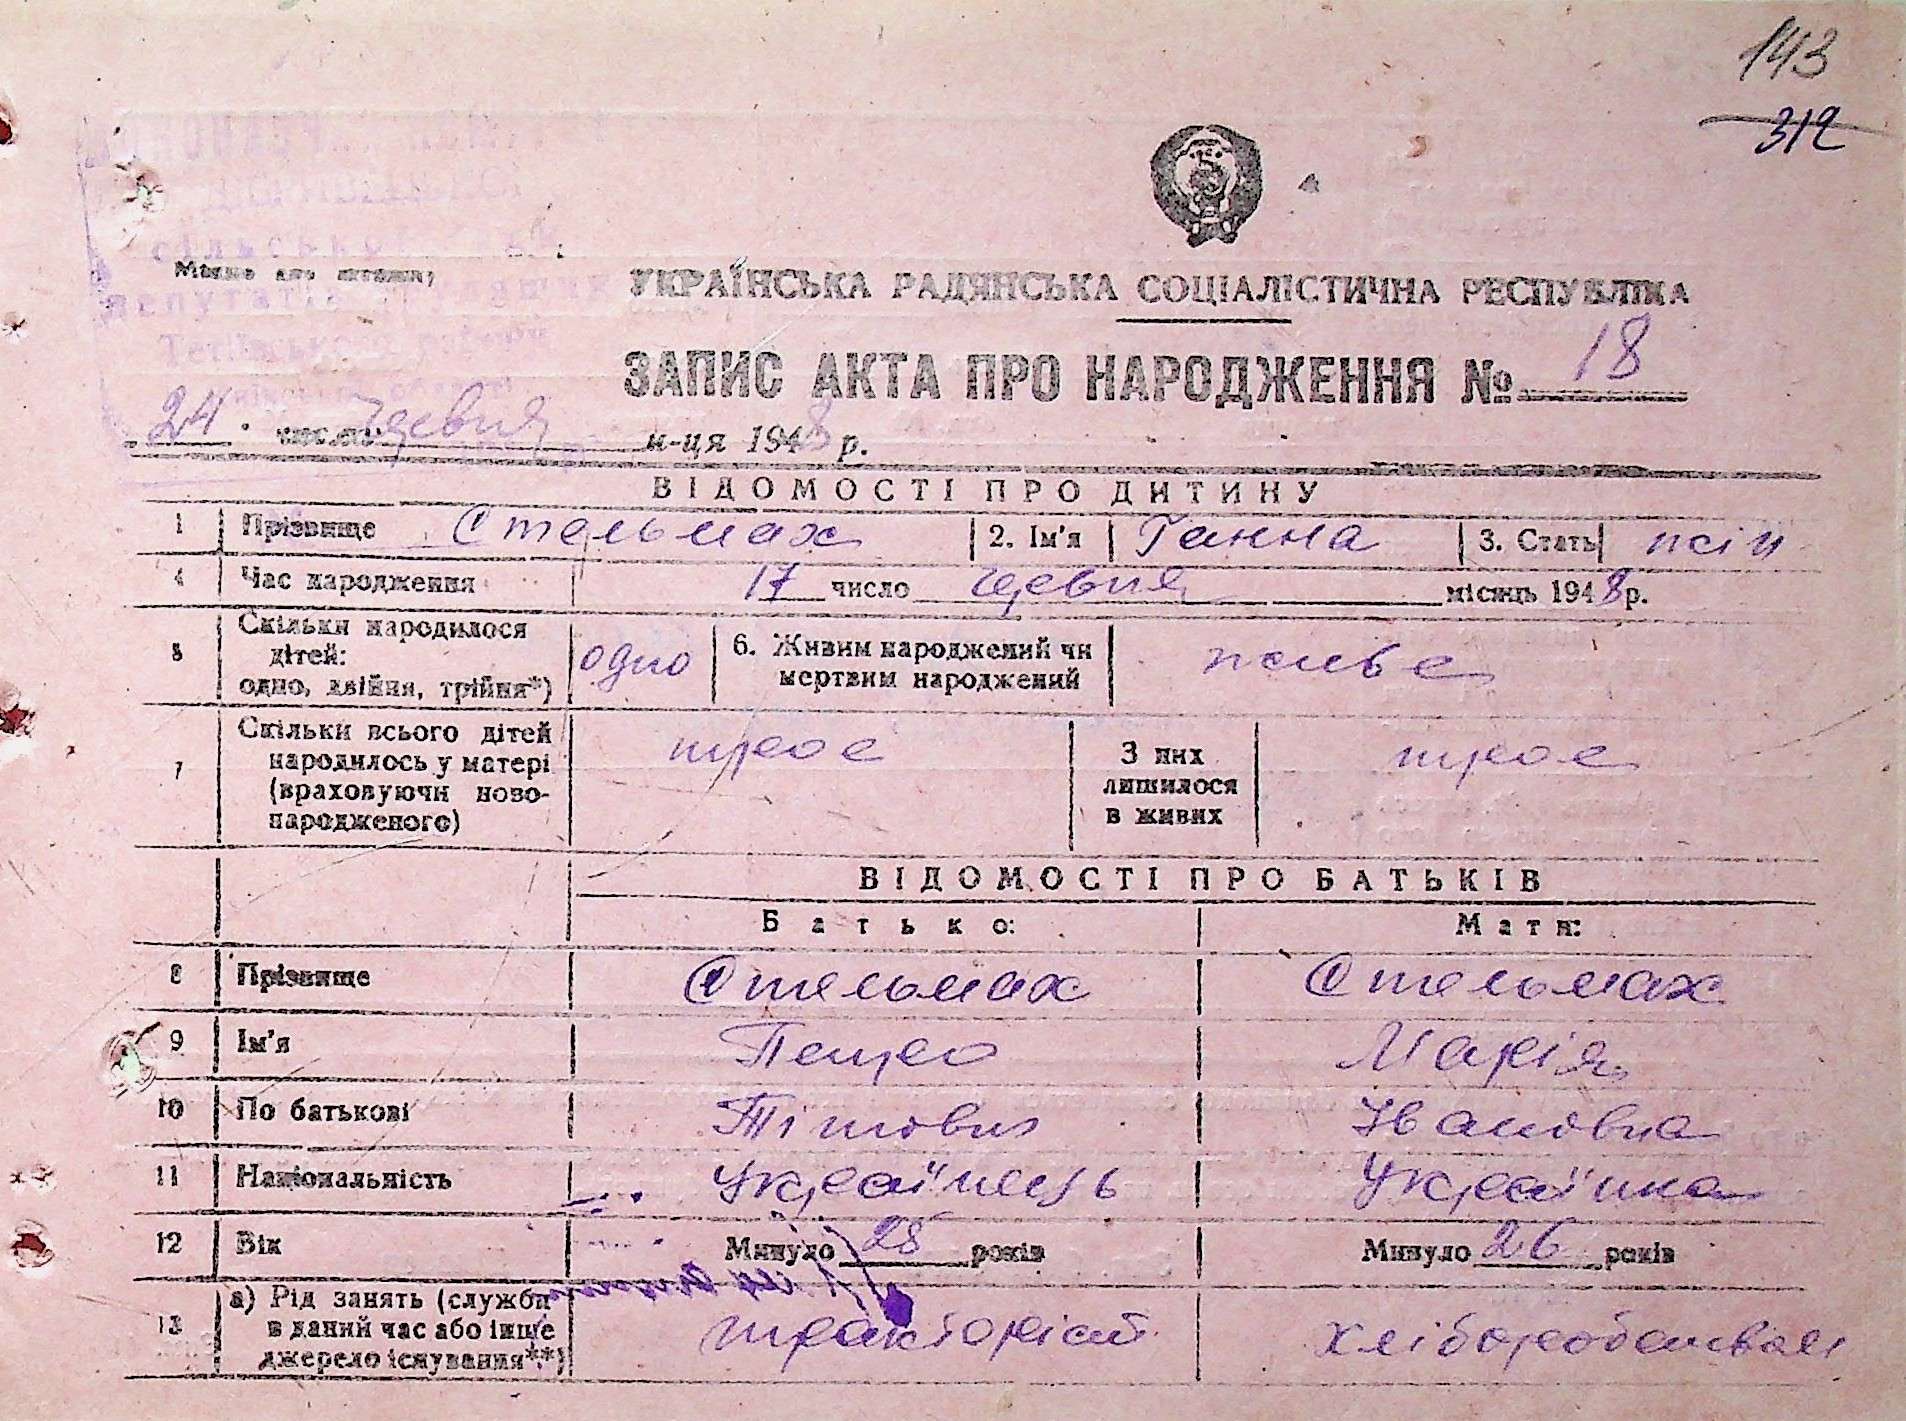 143
312
сільської
депутатів трудящих
Тетіївського району
Київської області
Місце для штампа
УКРАЇНСЬКА РАДЯНСЬКА СОЦІАЛІСТИЧНА РЕСПУБЛІКА
ЗАПИС АКТА ПРО НАРОДЖЕННЯ № 18
24 числа червня м-ця 1948 р.
ВІДОМОСТІ ПРО ДИТИНУ
1 Прізвище Стельмах 2. Ім'я Ганна 3. Стать жін
4 Час народження 17 число червня місяць 1948 р.
5 Скільки народилося дітей: одно, двійня, трійня*) одно 6. Живим народжений чи мертвим народжений живе
7 Скільки всього дітей народилось у матері (враховуючи новонародженого) троє З них лишилося в живих троє
ВІДОМОСТІ ПРО БАТЬКІВ
Батько: Мати:
8 Прізвище Стельмах Стельмах
9 Ім'я Петро Марія
10 По батькові Тітович Івановна
11 Національність Українець Українка
12 Вік Минуло 28 років Минуло 26 років
13 а) Рід занять (служби в даний час або інше джерело існування**) тракторіст хлібороб